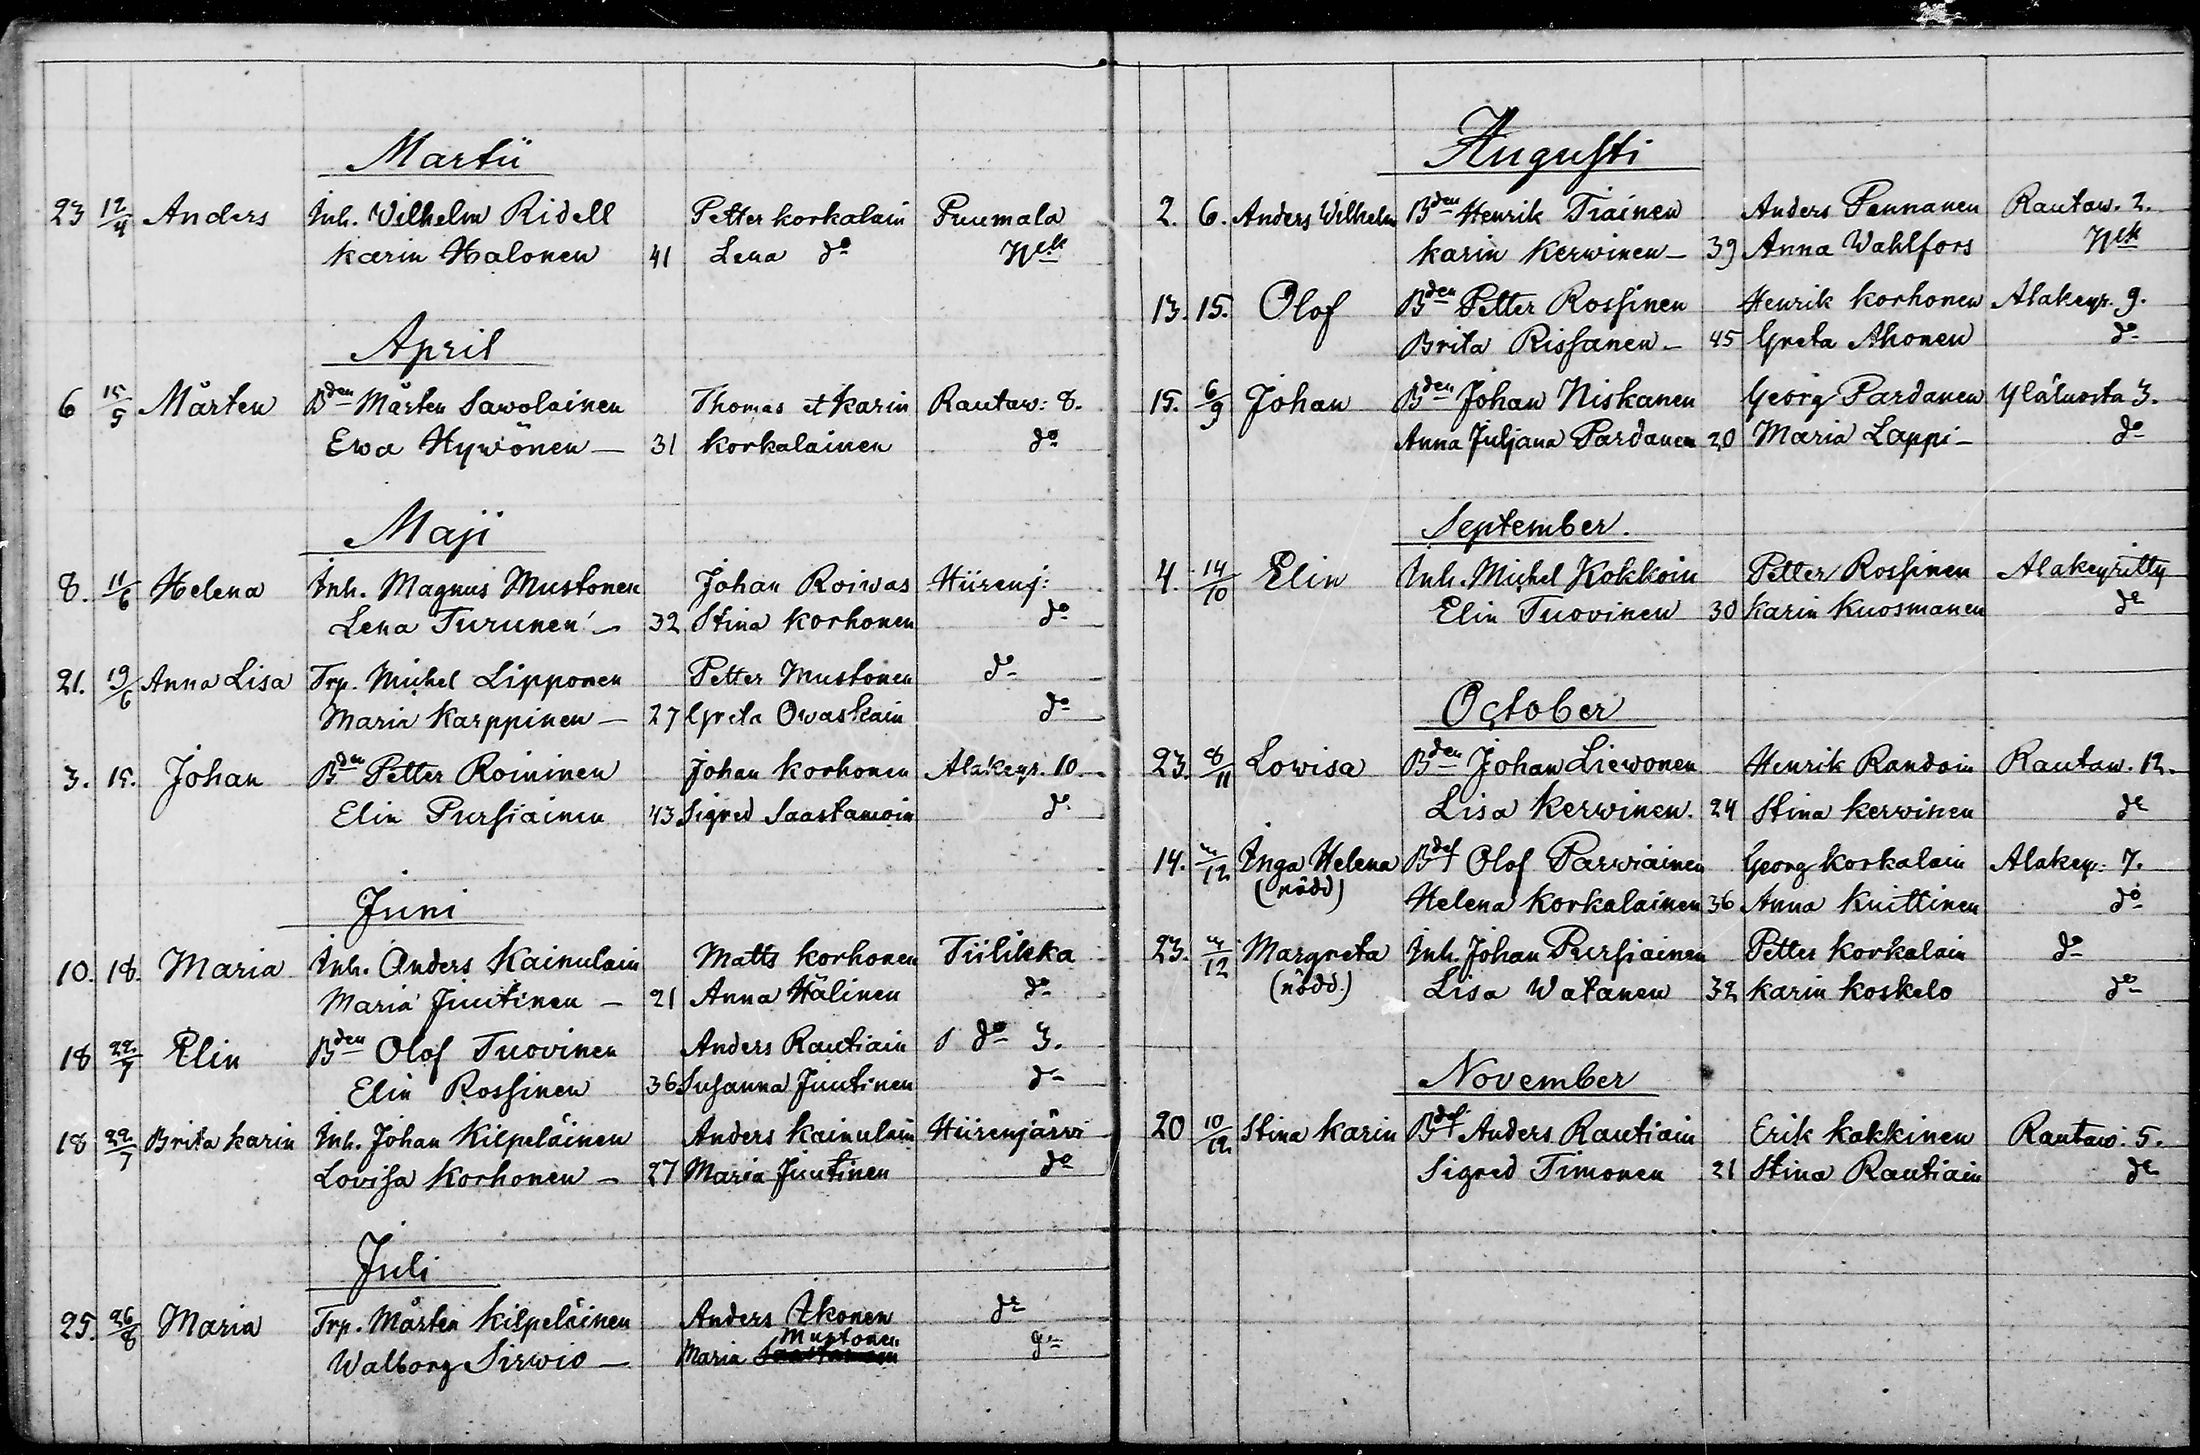 Martii
23 12/4 Anders Inh. Wilhelm Ridell Petter Korkalain Puumala
Karin Halonen 41 Lena do
April
6 15/5 Mårten Bden Mårten Sawolainen Thomas et Karin Rautaw: 8.
Ewa Hywönen — 31 Korkalainen do
Maji
8. 11/6 Helena Inh. Magnus Mustonen Johan Roiwas Hiirenj:
Lena Turunen — 32 Stina Korhonen do
21. 19/6 Anna Lisa Trp. Michel Lipponen Petter Mustonen do
Maria Karppinen — 27 Greta Owaskain do
3. 15. Johan Bden Petter Roininen Johan Korhonen Alakeyr. 10
Elin Pursiainen 43 Sigred Saastamoin do
Juni
10. 18. Maria Inh. Anders Kainulain Matts Korhonen Tiilikka
Maria Juutinen — 21 Anna Hälinen do
18 22/7 Elin Bden Olof Tuovinen Anders Rautiain do 3.
Elin Rossinen 36 Susanna Juutinen do
18 22/7 Brita Karin Inh. Johan Kilpeläinen Anders Kainulain Hiirenjärvi
Lovisa Korhonen — 27 Maria Juutinen do
Juli
25. 26/8 Maria Trp. Mårten Kilpeläinen Anders Ikonen do
Mustonen
Walborg Sirwio — Maria do
Augusti
2. 6. Anders Wilhelm Bden Henrik Tiainen Anders Pennanen Rautaw. 2.
Karin Kerwinen — 39 Anna Wahlfors
13. 15. Olof Bden Petter Rossinen Henrik Korhonen Alakeyr. 9.
Brita Rissanen — 45 Greta Ahonen do
15. 6/9 Johan Bden Johan Niskanen Georg Pardanen Yläluosta 3.
Anna Juljana Pardanen 20 Maria Lappi — do
September.
4. 14/10 Elin Inh. Michel Kokkoin Petter Rossinen Alakeyritty
Elin Tuovinen 30 Karin Kuosmanen do
October
23. 8/11 Lowisa Bden Johan Liewonen Henrik Randain Rautaw. 12.
Lisa Kerwinen. 24 Stina Kerwinen do
14. /12 Inga Helena Bdef Olof Parwiainen Georg Korkalain Alakeyr: 7.
(nödd)
Helena Korkalainen 36 Anna Knittinen do
23. /12 Margreta Inh. Johan Pursiainen Petter Korkalain do
(nödd.) Lisa Watanen 32 Karin Koskelo do
November
20 10/12 Stina Karin Bdef Anders Rautiain Erik Kakkinen Rautaw. 5.
Sigred Timonen 21 Stina Rautiain do